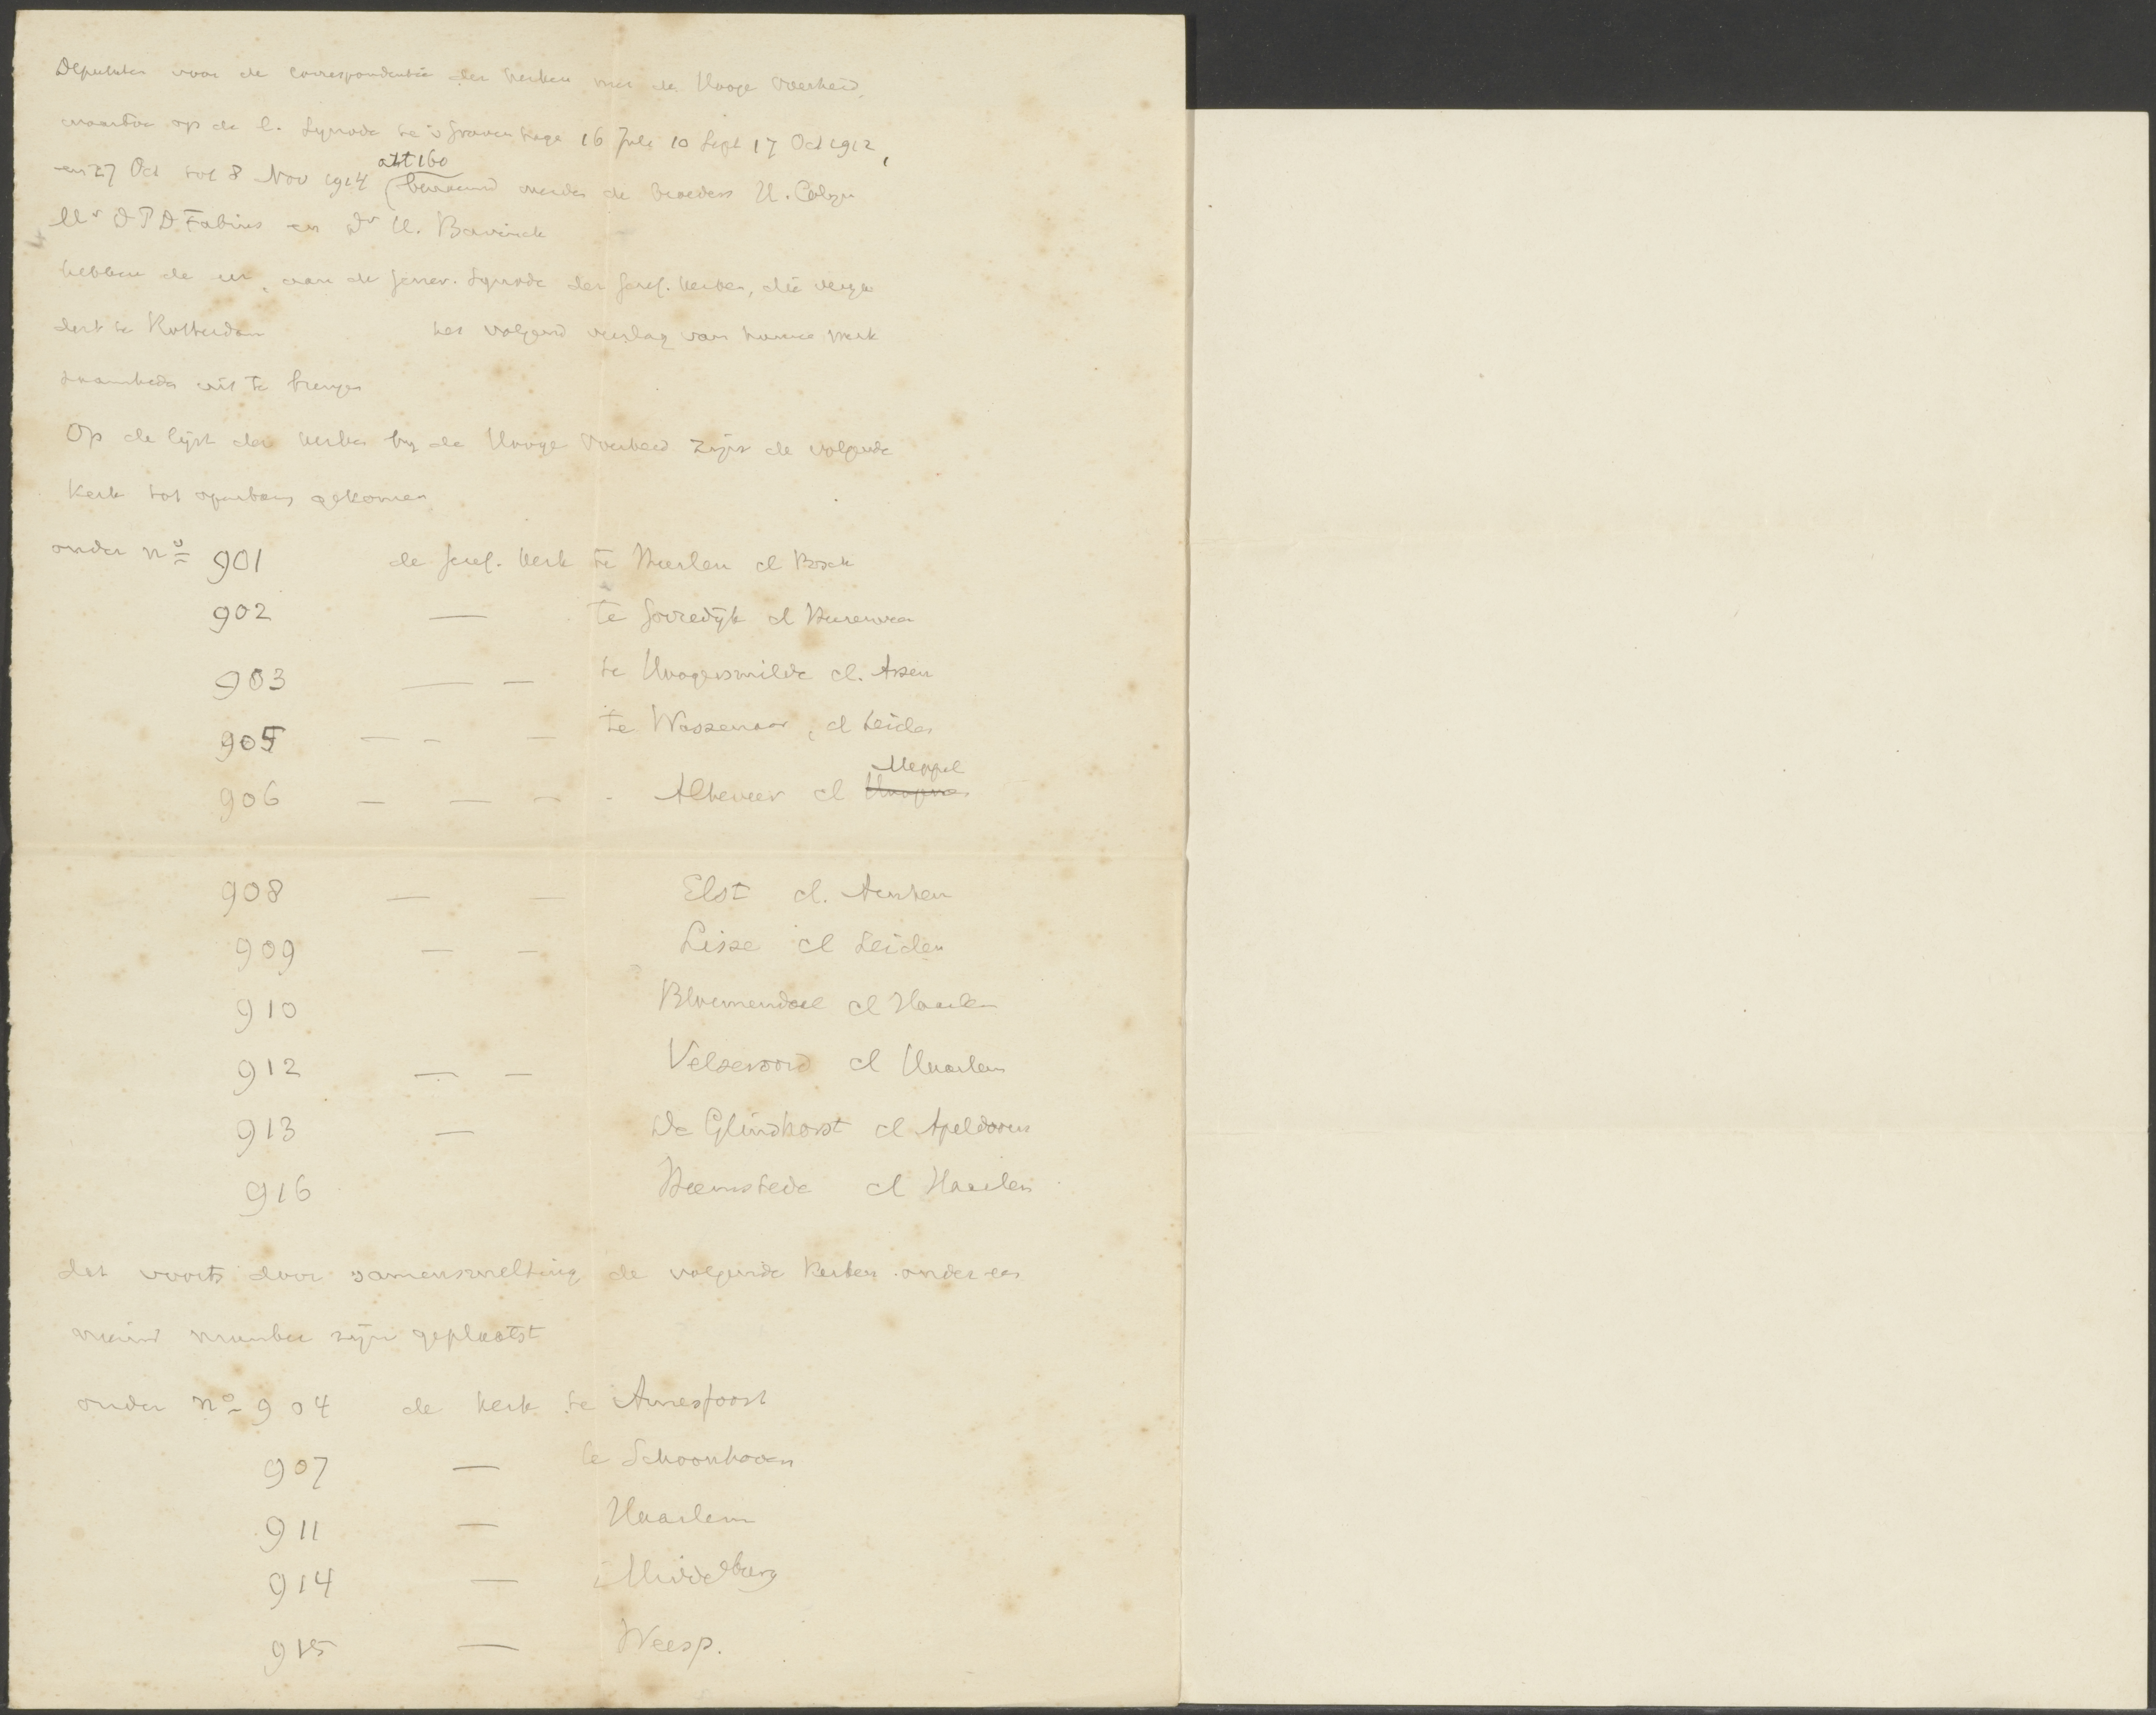 Deputaten voor de correspondentie der kerken met de Hooge Overheid,
waartoe op de G. Synode te 's Gravenhage 16 Juli 10 Sept 17 Oct 1912,
en 27 Oct tot 8 Nov 1914 (art 160 benoemd werden de broeders H. Colijn
Mr D P D Fabius en Dr H. Bavinck
hebben de eer, aan de Gener. Synode der Geref. kerken, die verga
dert te Rotterdam het volgend verslag van hunne werk
zaamheden uit te brengen
Op de lijst der kerken bij de Hooge Overheid zijn de volgende
kerk tot openbaring gekomen
onder no 901 de Geref. kerk te Heerlen cl Bosch
902 — te Gorredijk cl Heerenveen
903 — — te Hoogersmilde cl. Assen
905 — - — te Wassenaar, cl Leiden
906 — — - - Alteveer cl Meppel
908 — — Elst cl. Arnhem
909 — — Lisse cl Leiden
910 Bloemendaal cl Haarlem
912 — — Velseroord cl Haarlem
913 — De Glindhorst cl Apeldoorn
916 Heemstede cl Haarlem
dat voorts door samensmelting de volgende kerken onder een
nieuw nummer zijn geplaatst
onder no 904 de kerk te Amersfoort
907 — te Schoonhoven
911 — Haarlem
914 — Middelburg
915 — Weesp.